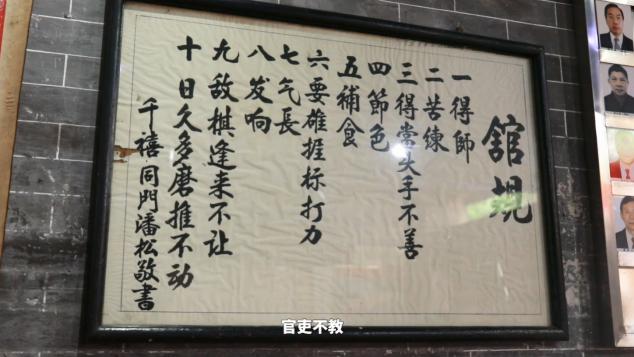 舘規
一得師
二苦練
三得當失手不善
四節色
五補食
六要碓捱标打力
七气長
八发响
九敌棋逢来不让
十日久多磨推不动
千禧同門潘松敬書
官吏不教